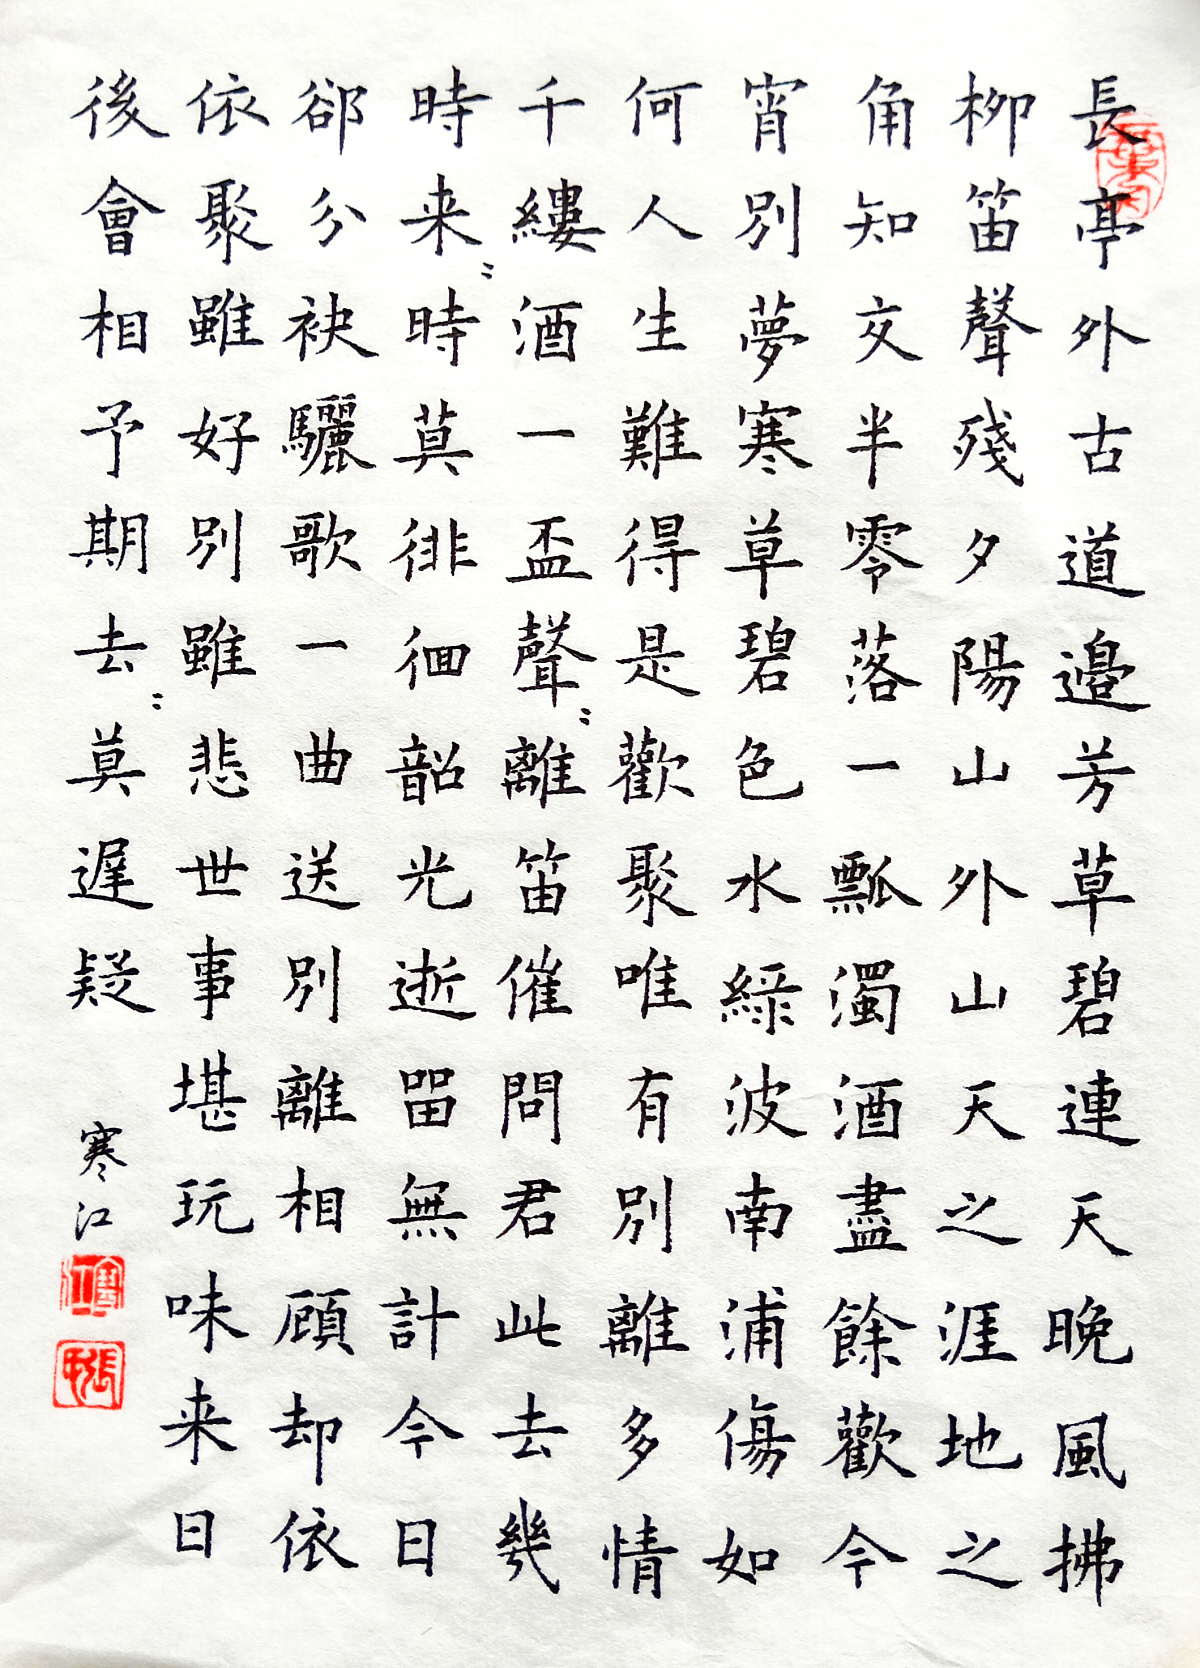 長亭外古道邊芳草碧連天晚風拂
柳笛聲殘夕陽山外山天之涯地之
角知交半零落一瓢濁酒盡餘歡今
宵別夢寒草碧色水綠波南浦傷如
何人生難得是歡聚唯有別離多情
千縷酒一盃聲〻離笛催問君此去幾
時来〻時莫徘徊韶光逝留無計今日
卻分袂驪歌一曲送別離相顧却依
依聚雖好別雖悲世事堪玩味来日
後會相予期去〻莫遲疑
寒江
寒江